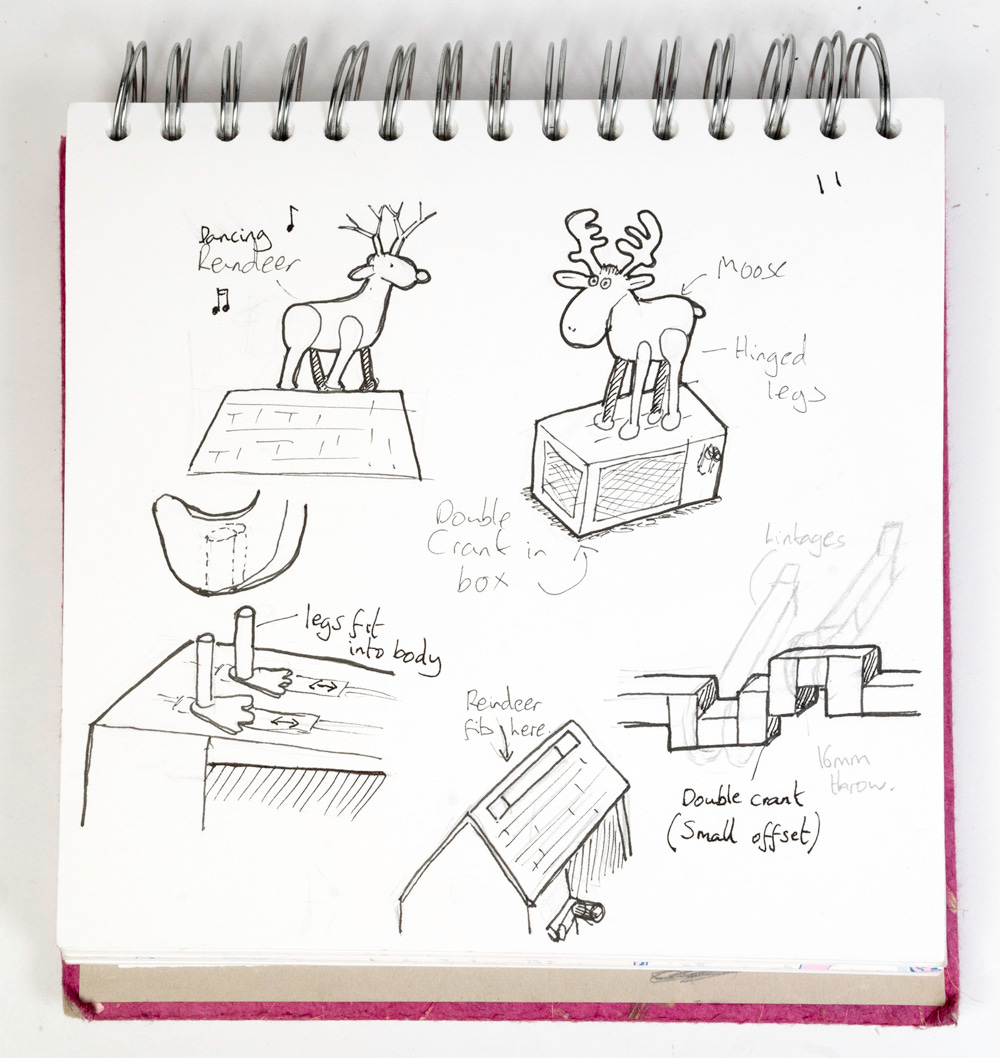 11
Dancing
Reindeer
Moose
Hinged
legs
Double
Crank in
box
Linkages
legs fit
into body
Reindeer
fits here.
16mm
throw.
Double crank
(Small offset)